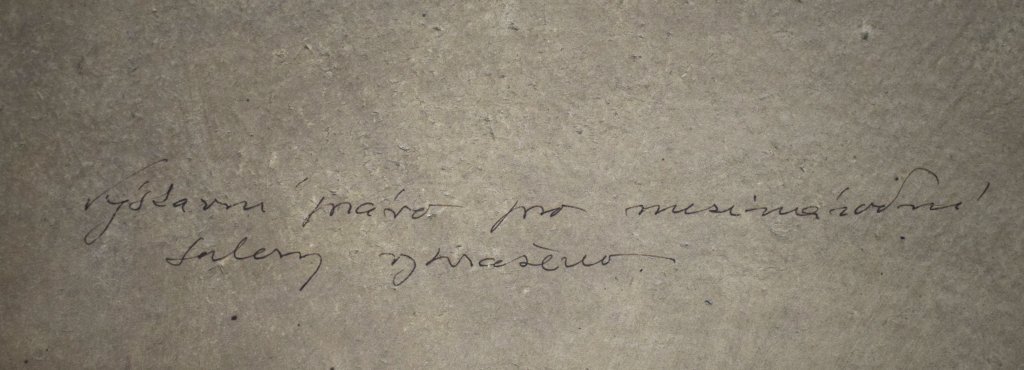 výstavní právo pro mezinárodní
salony vyhraženo.